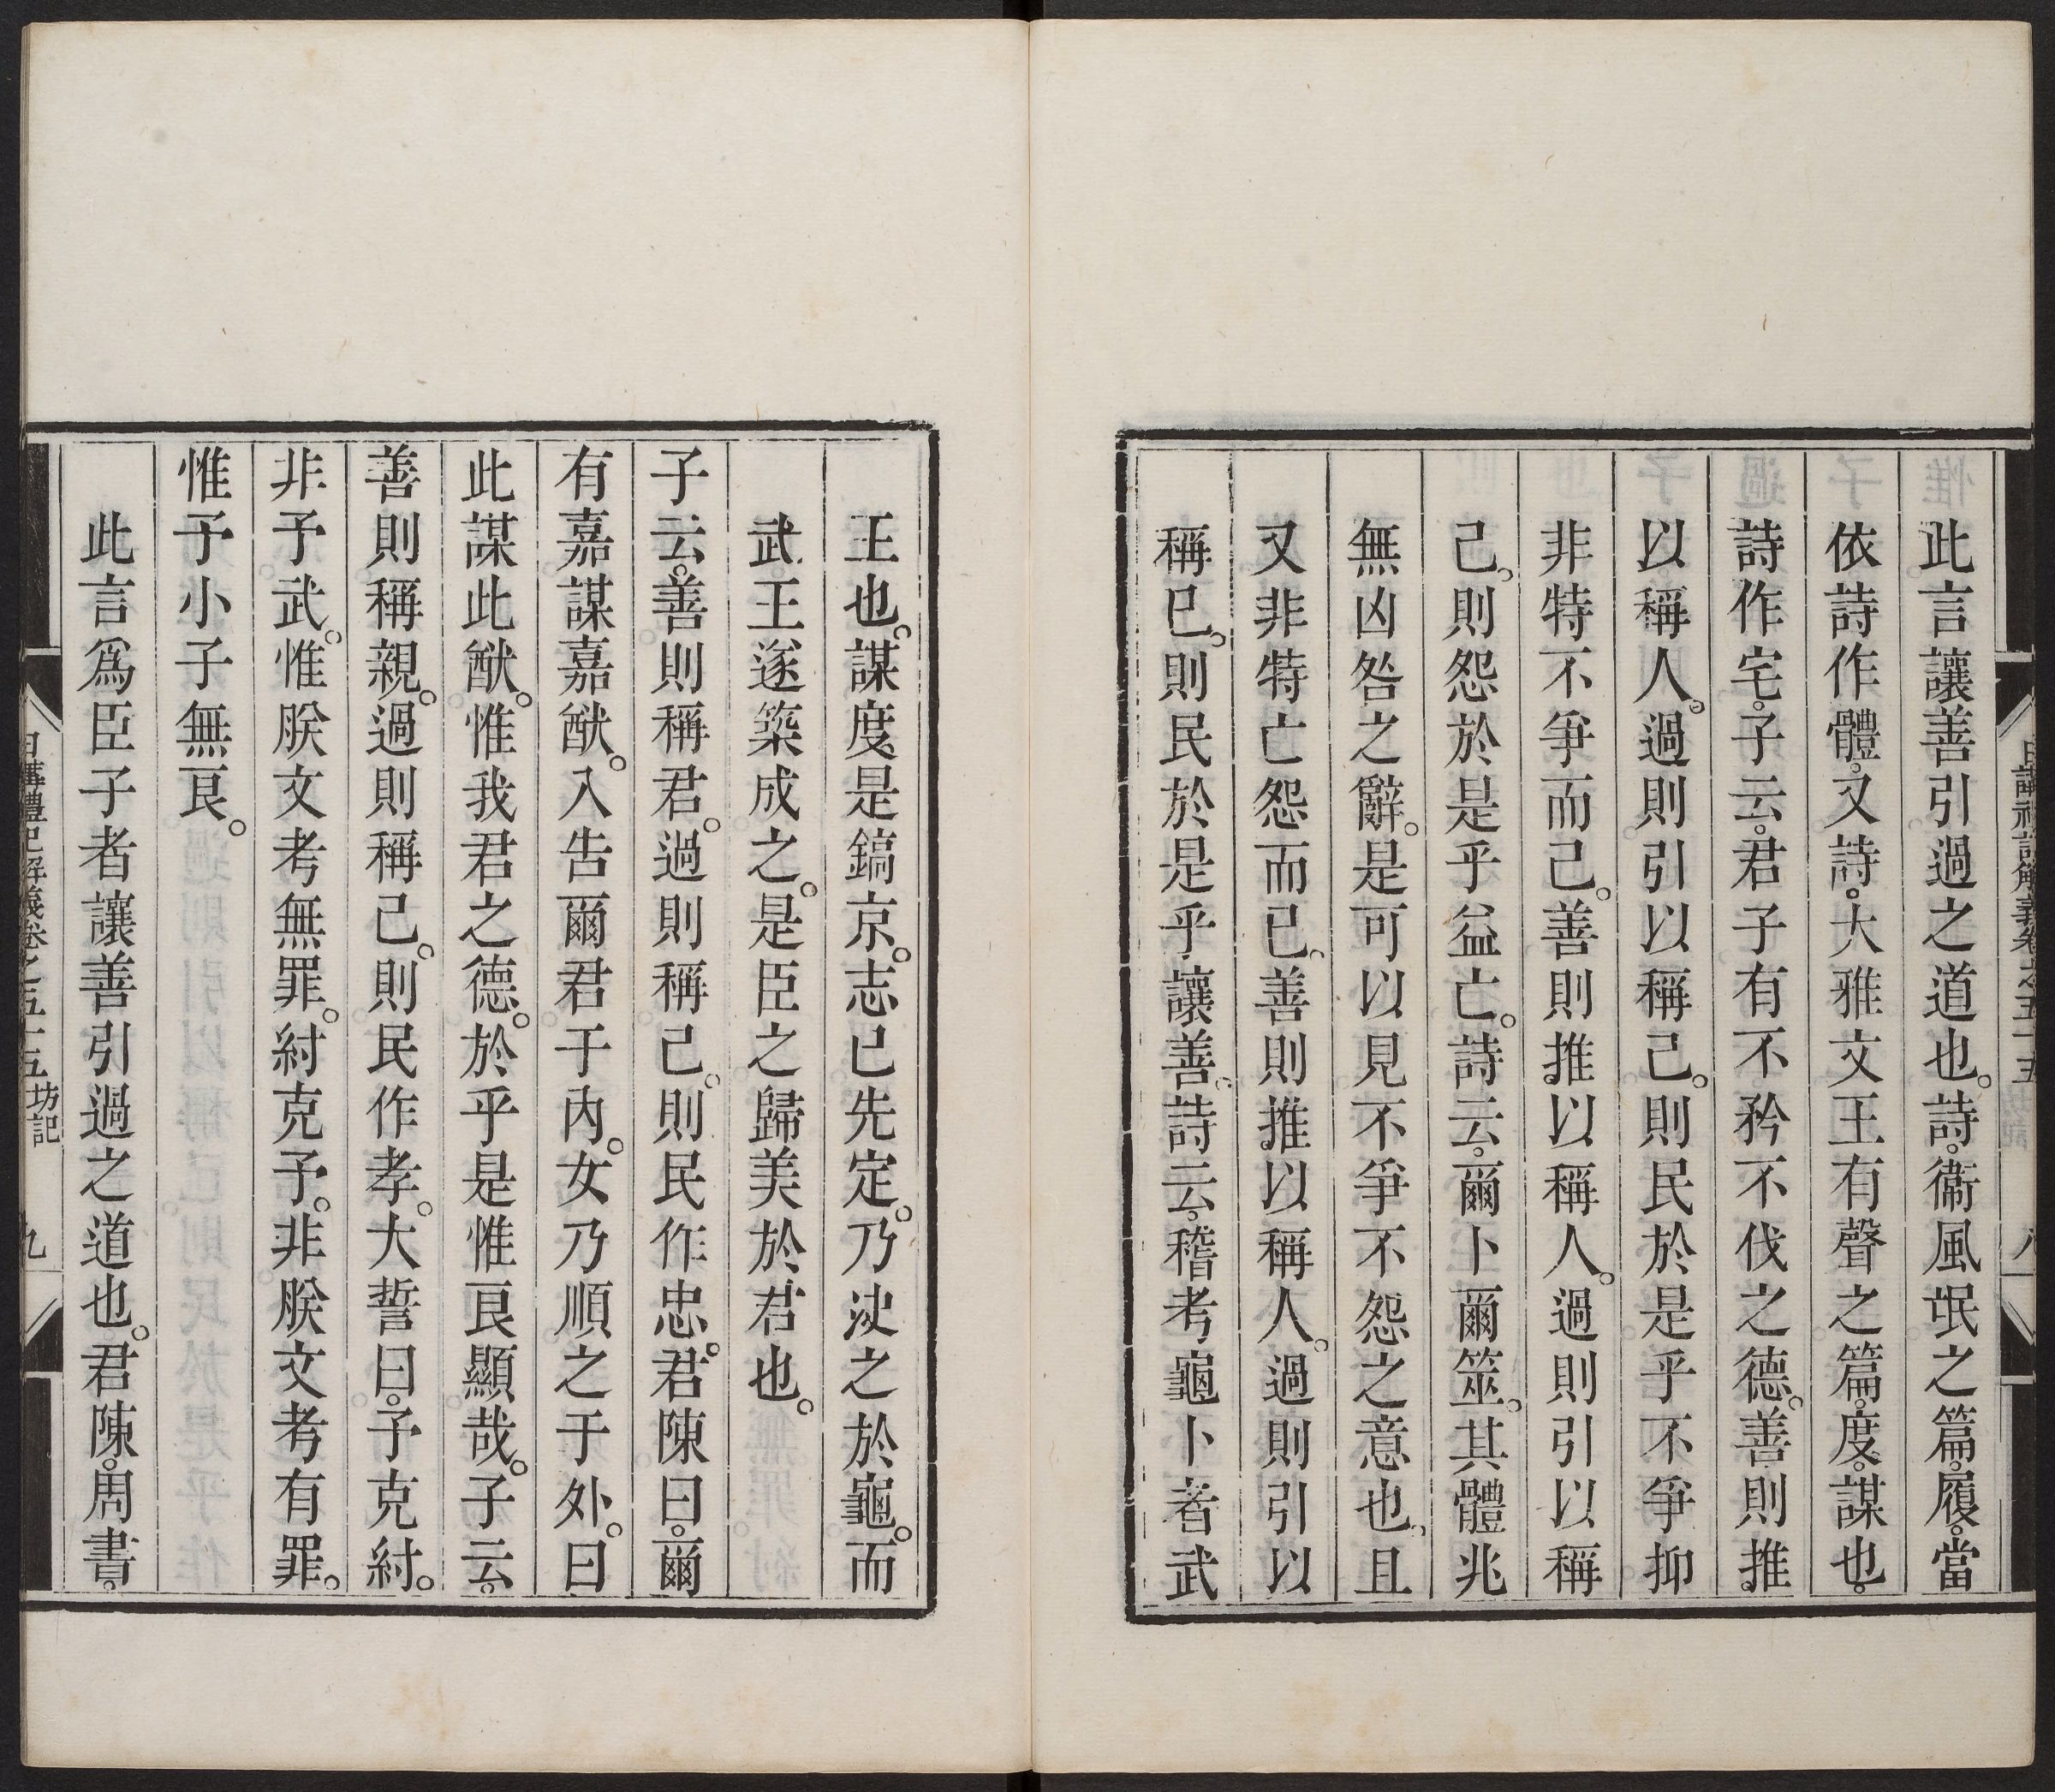 此言讓善引過之道也。詩。衞風氓之篇。履。當
依詩作體。又詩。大雅文王有聲之篇。度。謀也。
詩作宅。子云。君子有不矜不伐之德。善則推
以稱人。過則引以稱己。則民於是乎不爭抑
非特不爭而己。善則推以稱人。過則引以稱
己。則怨於是乎益亡。詩云。爾卜爾筮。其體兆
無凶咎之辭。是可以見不爭不怨之意也。且
又非特亡怨而已。善則推以稱人。過則引以
稱已。則民於是乎讓善。詩云。稽考龜卜者武
王也。謀度是鎬京。志已先定。乃決之於龜。而
武王遂築成之。是臣之歸美於君也。
子云。善則稱君。過則稱己。則民作忠。君陳曰。爾
有嘉謀嘉猷。入告爾君于內。女乃順之于外。曰
此謀此猷。惟我君之德。於乎是惟良顯哉。子云。
善則稱親。過則稱己。則民作孝。大誓曰。予克紂。
非予武。惟朕文考無罪。紂克予。非朕文考有罪。
惟予小子無良。
此言爲臣子者讓善引過之道也。君陳。周書。
日講禮記解義卷之五十五 坊記 九